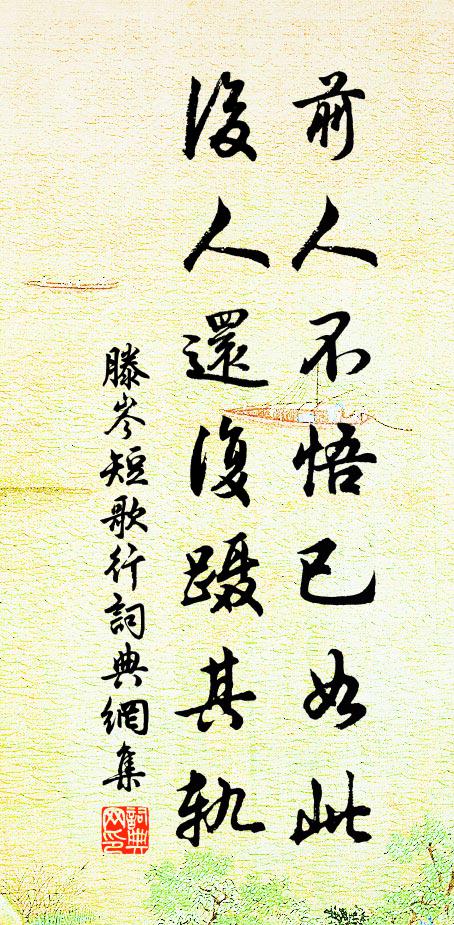 前人不悟已如此
後人還復躡其軌
滕岑短歌行詞典網集
詞典网印